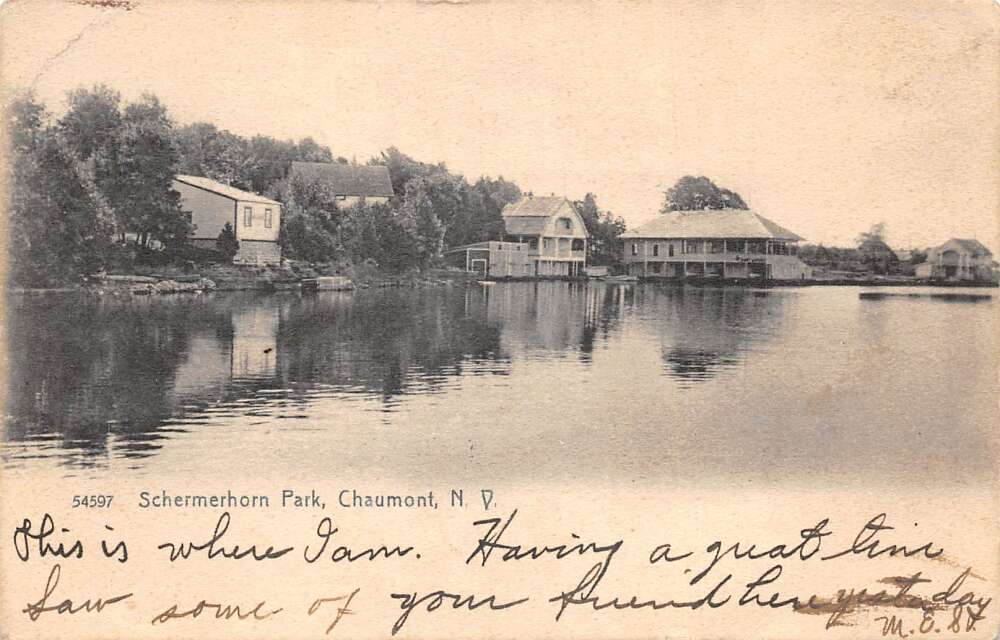 54597 Schermerhorn Park, Chaumont, N. Y.
This is where I am. Having a great time
Saw some of your friend here yesterday
M. E. St.